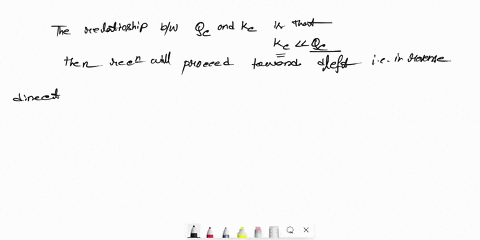 The relationship b/w Qc and Kc is that
Kc << Qc
then reacn will proceed towards left i.e. in reverse
direct